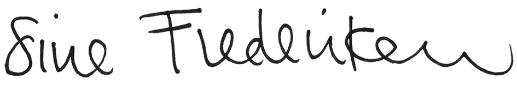 Sine Frederiksen